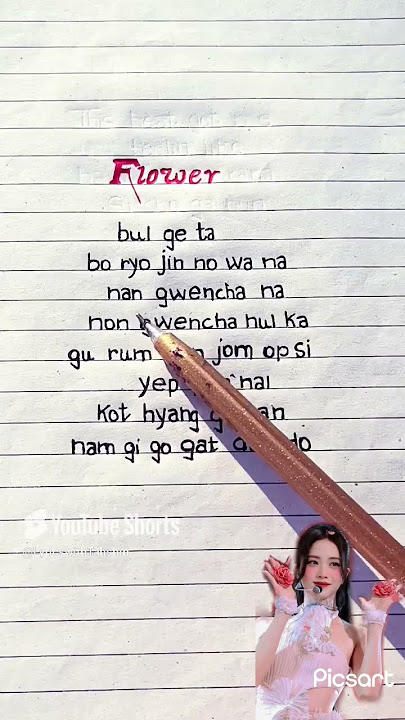 Flower
bul ge ta
bo ryo jin no wa na
nan gwencha na
non gwencha nul ka
gu rum jom op si
nal
kot hyang
nam gi go gat do
YouTube Shorts
Picsart